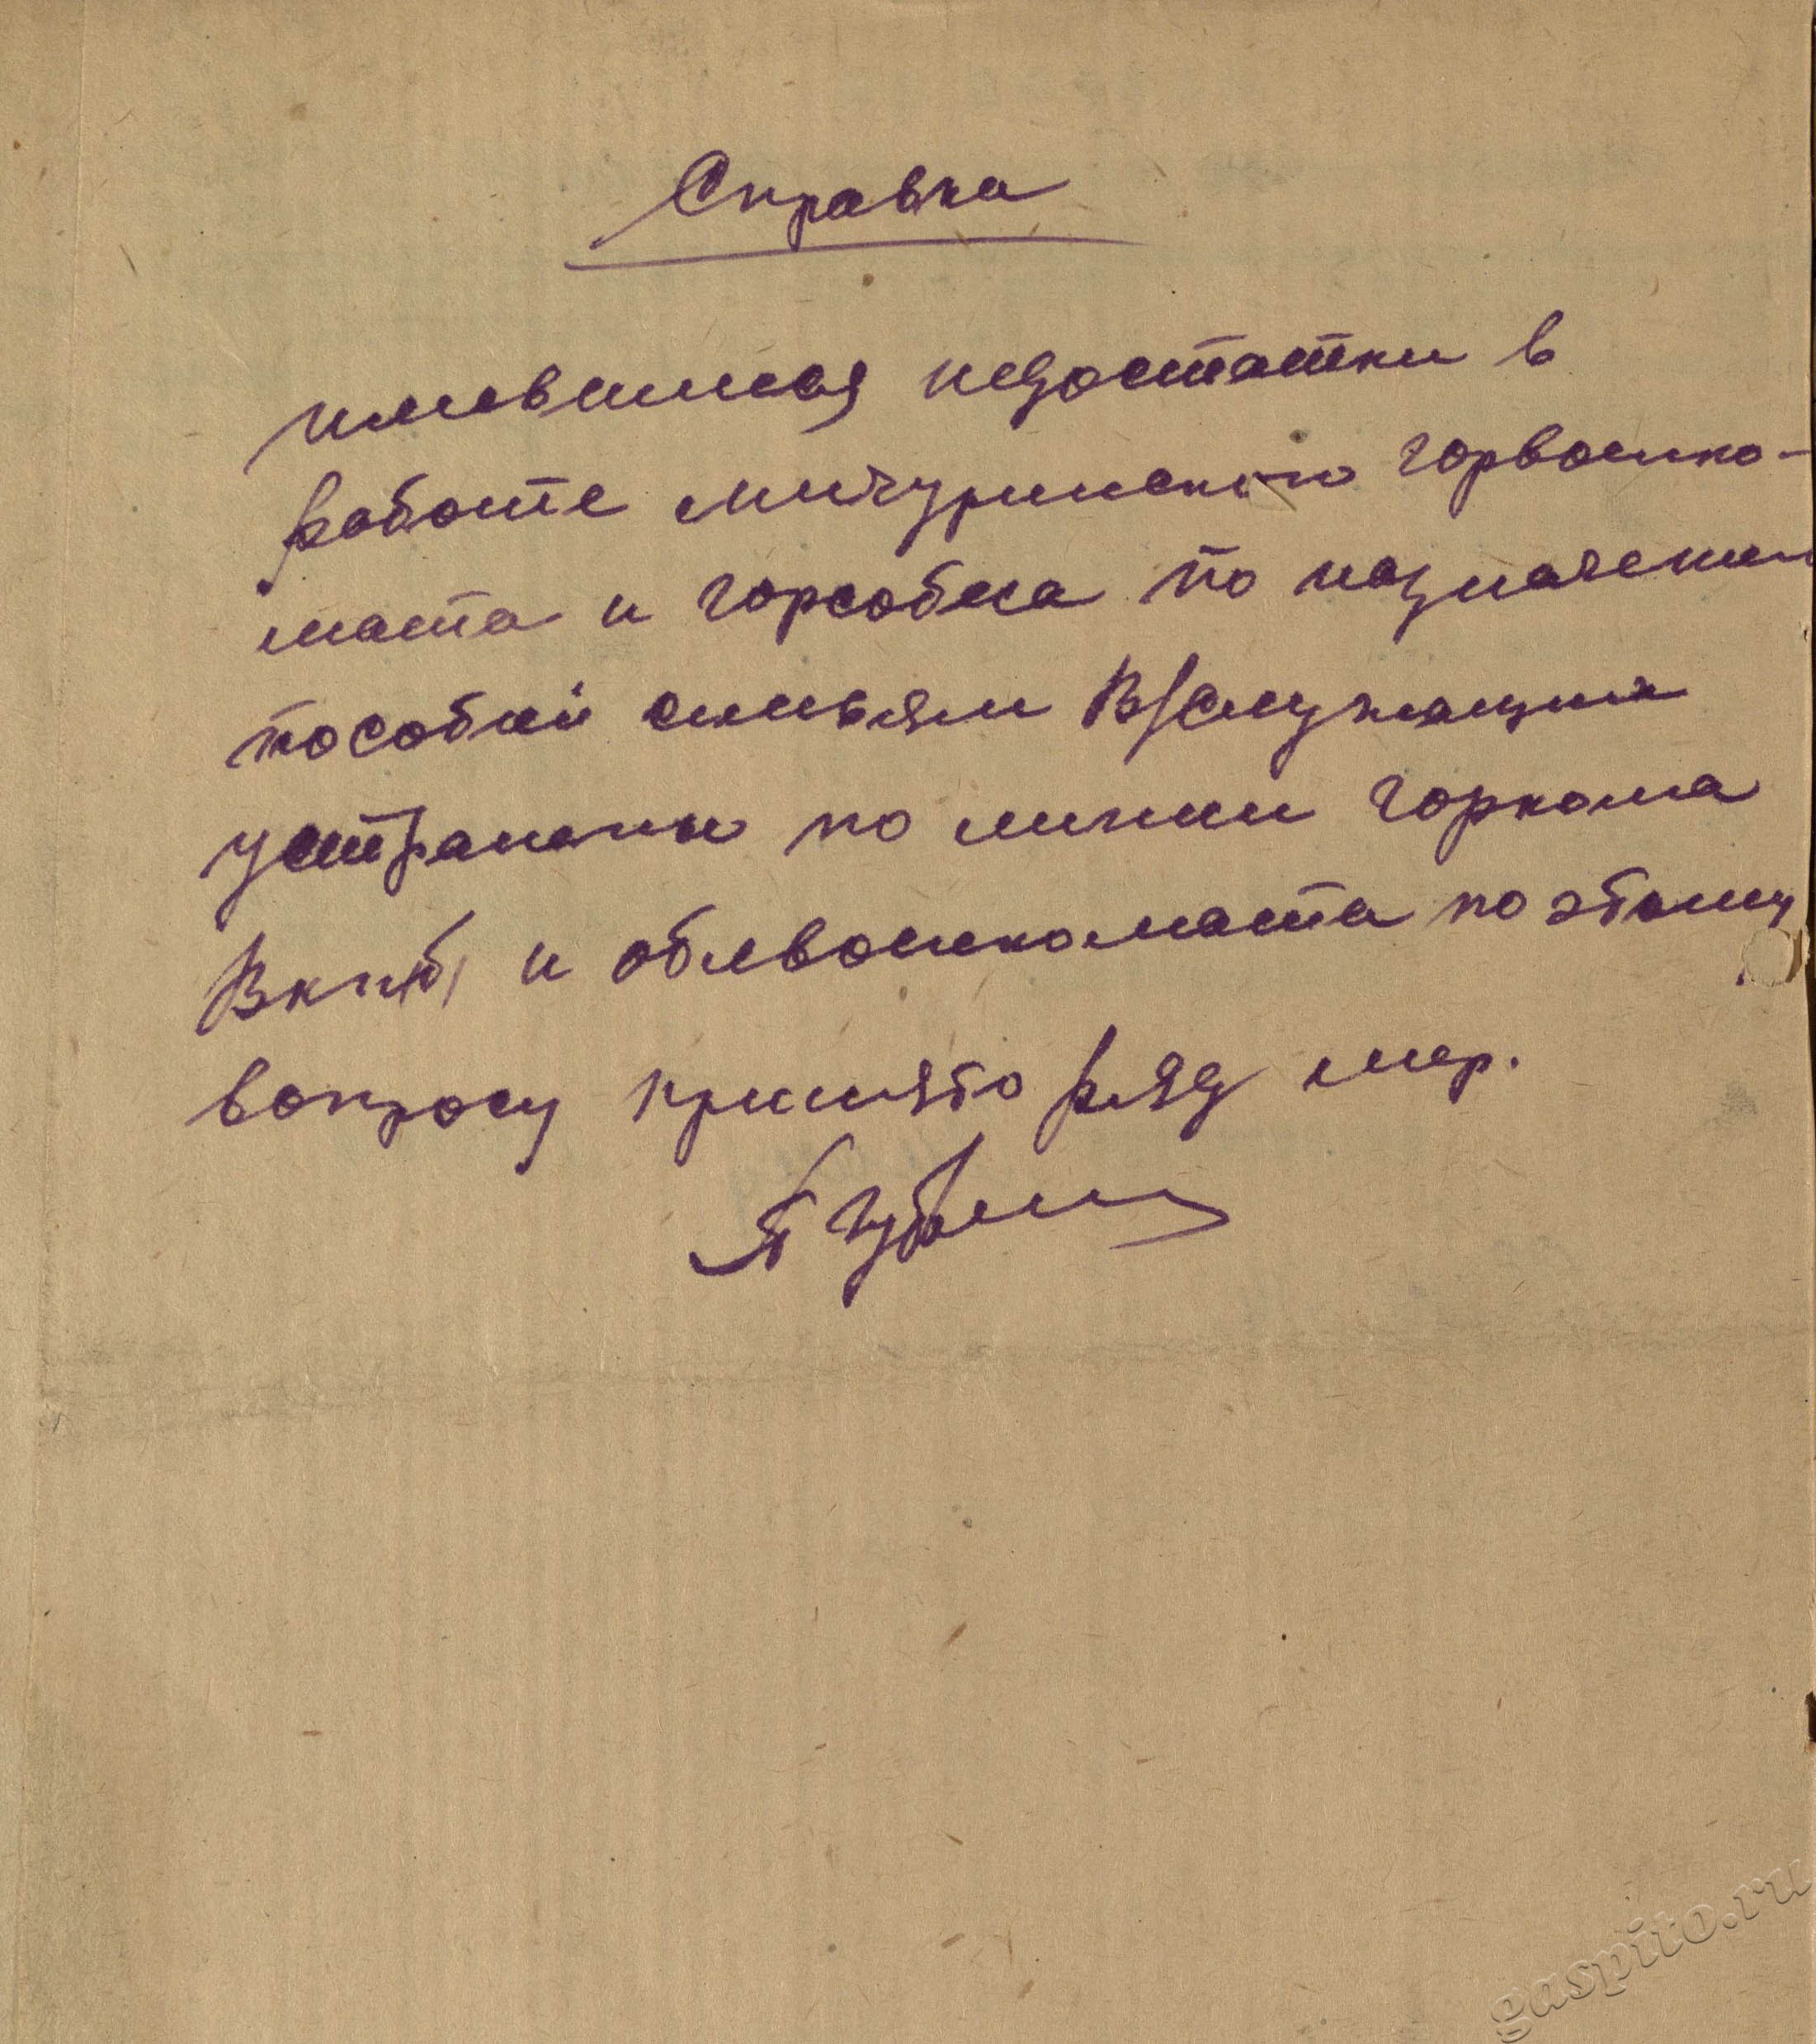 Справка
имевшиеся недостатки в
работе мичуринского горвоенко-
мата и горсобеса по назначению
пособий семьям В/служащих
устранены по линии горкома
Вкп(б) и облвоенкомата по этому
вопросу принято ряд мер.
gaspito.ru